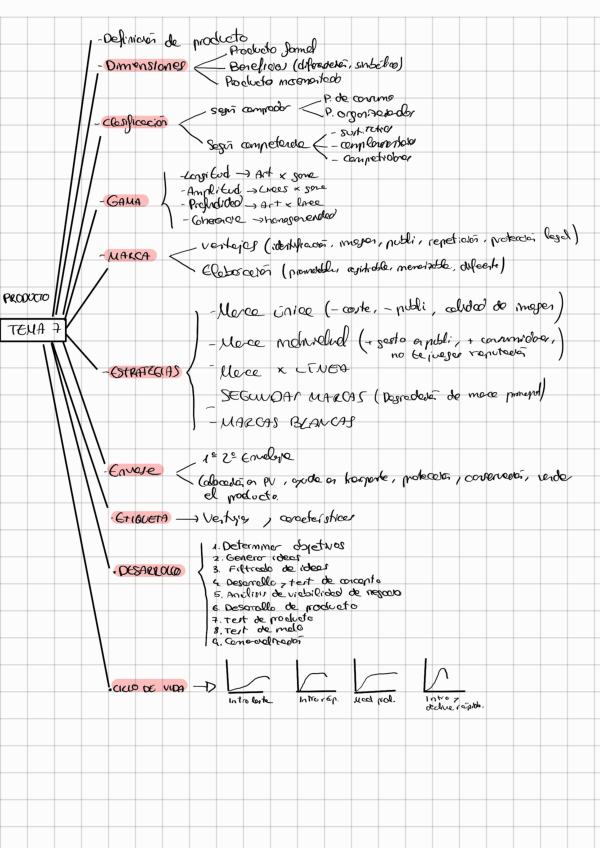 - Definición de producto
- Dimensiones
Producto formal
Beneficios (diferenciación, simbólico)
Producto incrementado
- Clasificación
según comprador
P. de consumo
P. organizador
Según competencia
- complementarios
- competidores
- GAMA
- Longitud → Art x gama
- Amplitud → Líneas x gama
- Profundidad → Art x línea
- Coherencia → homogeneidad
- MARCA
ventajas (identificación, imagen, publi, repetición, protección legal)
Elaboración (pronunciable, registrable, memorizable, diferente)
PRODUCTO
TEMA 7
- ESTRATEGIAS
- Marca única (- coste, - publi, calidad de imagen)
- Marca individual (+ gasto en publi, + consumidores,
no te juegas reputación)
- Marca x LÍNEA
- SEGUNDAS MARCAS (Degradación de marca principal)
- MARCAS BLANCAS
- Envase
1ª 2ª Envoltura
Colocación PV, ayuda en transporte, protección, conservación, vende
el producto.
- ETIQUETA → Ventajas, características
- DESARROLLO
1. Determinar objetivos
2. Generar ideas
3. Filtrado de ideas
4. Desarrollo y test de concepto
5. Análisis de viabilidad de negocio
6. Desarrollo de producto
7. Test de producto
8. Test de mdo
9. Comercialización
- CICLO DE VIDA →
Intro lenta
Intro ráp.
Intro y
declive rápido.